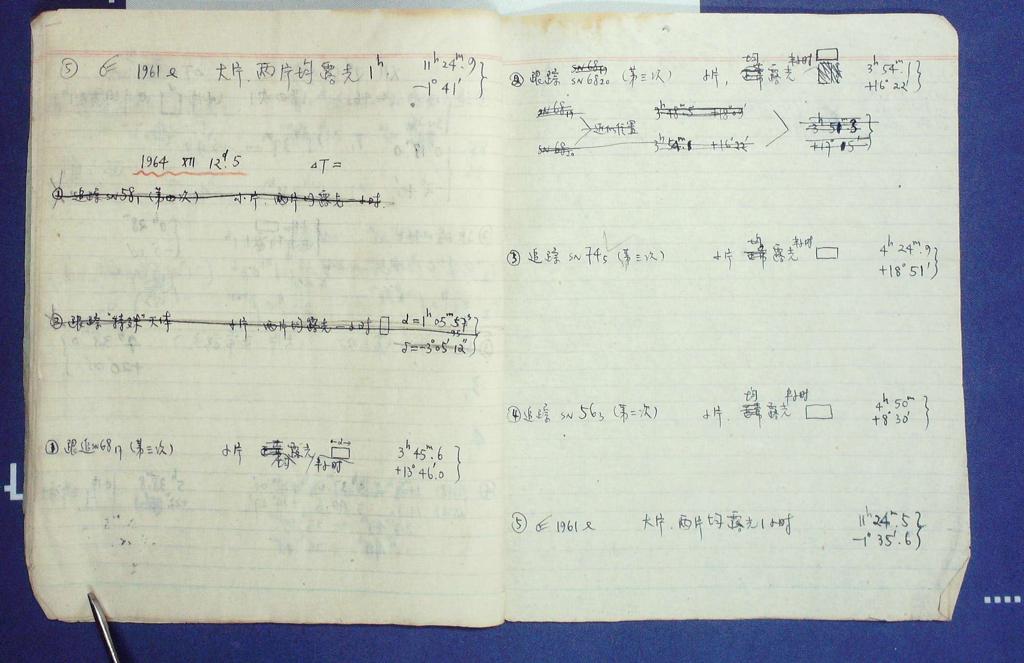 ⑤ 1961 e 大片.两片均露光 1ʰ 11ʰ24ᵐ.9
-1°41′
1964 XII 12ᵈ.5 ΔT=
① 追踪 SN58₁ (第四次) 小片.两片均露光一小时.
② 跟踪"特殊"天体 小片.两片均露光一小时 α=1ʰ05ᵐ57ˢ
δ=-3°05′12″
① 跟追SN68₁₇ (第三次) 小片 露光 半小时 3ʰ45ᵐ.6
+13°46′.0
② 跟踪 SN68₂₀ (第三次) 小片 均露光 半小时 3ʰ54ᵐ.1
+16°22′
SN68₁₇ 3ʰ48ᵐ.5
近似位置
SN68₂₀ 3ʰ54ᵐ.1 +16°22′
③ 追踪 SN74₅ (第三次) 小片 均露光 半小时 4ʰ24ᵐ.9
+18°51′
④ 追踪 SN56₃ (第三次) 小片. 均露光 半小时 4ʰ50ᵐ
+8°30′
⑤ 1961 e 大片.两片均露光1小时 11ʰ24ᵐ.5
-1°35′.6